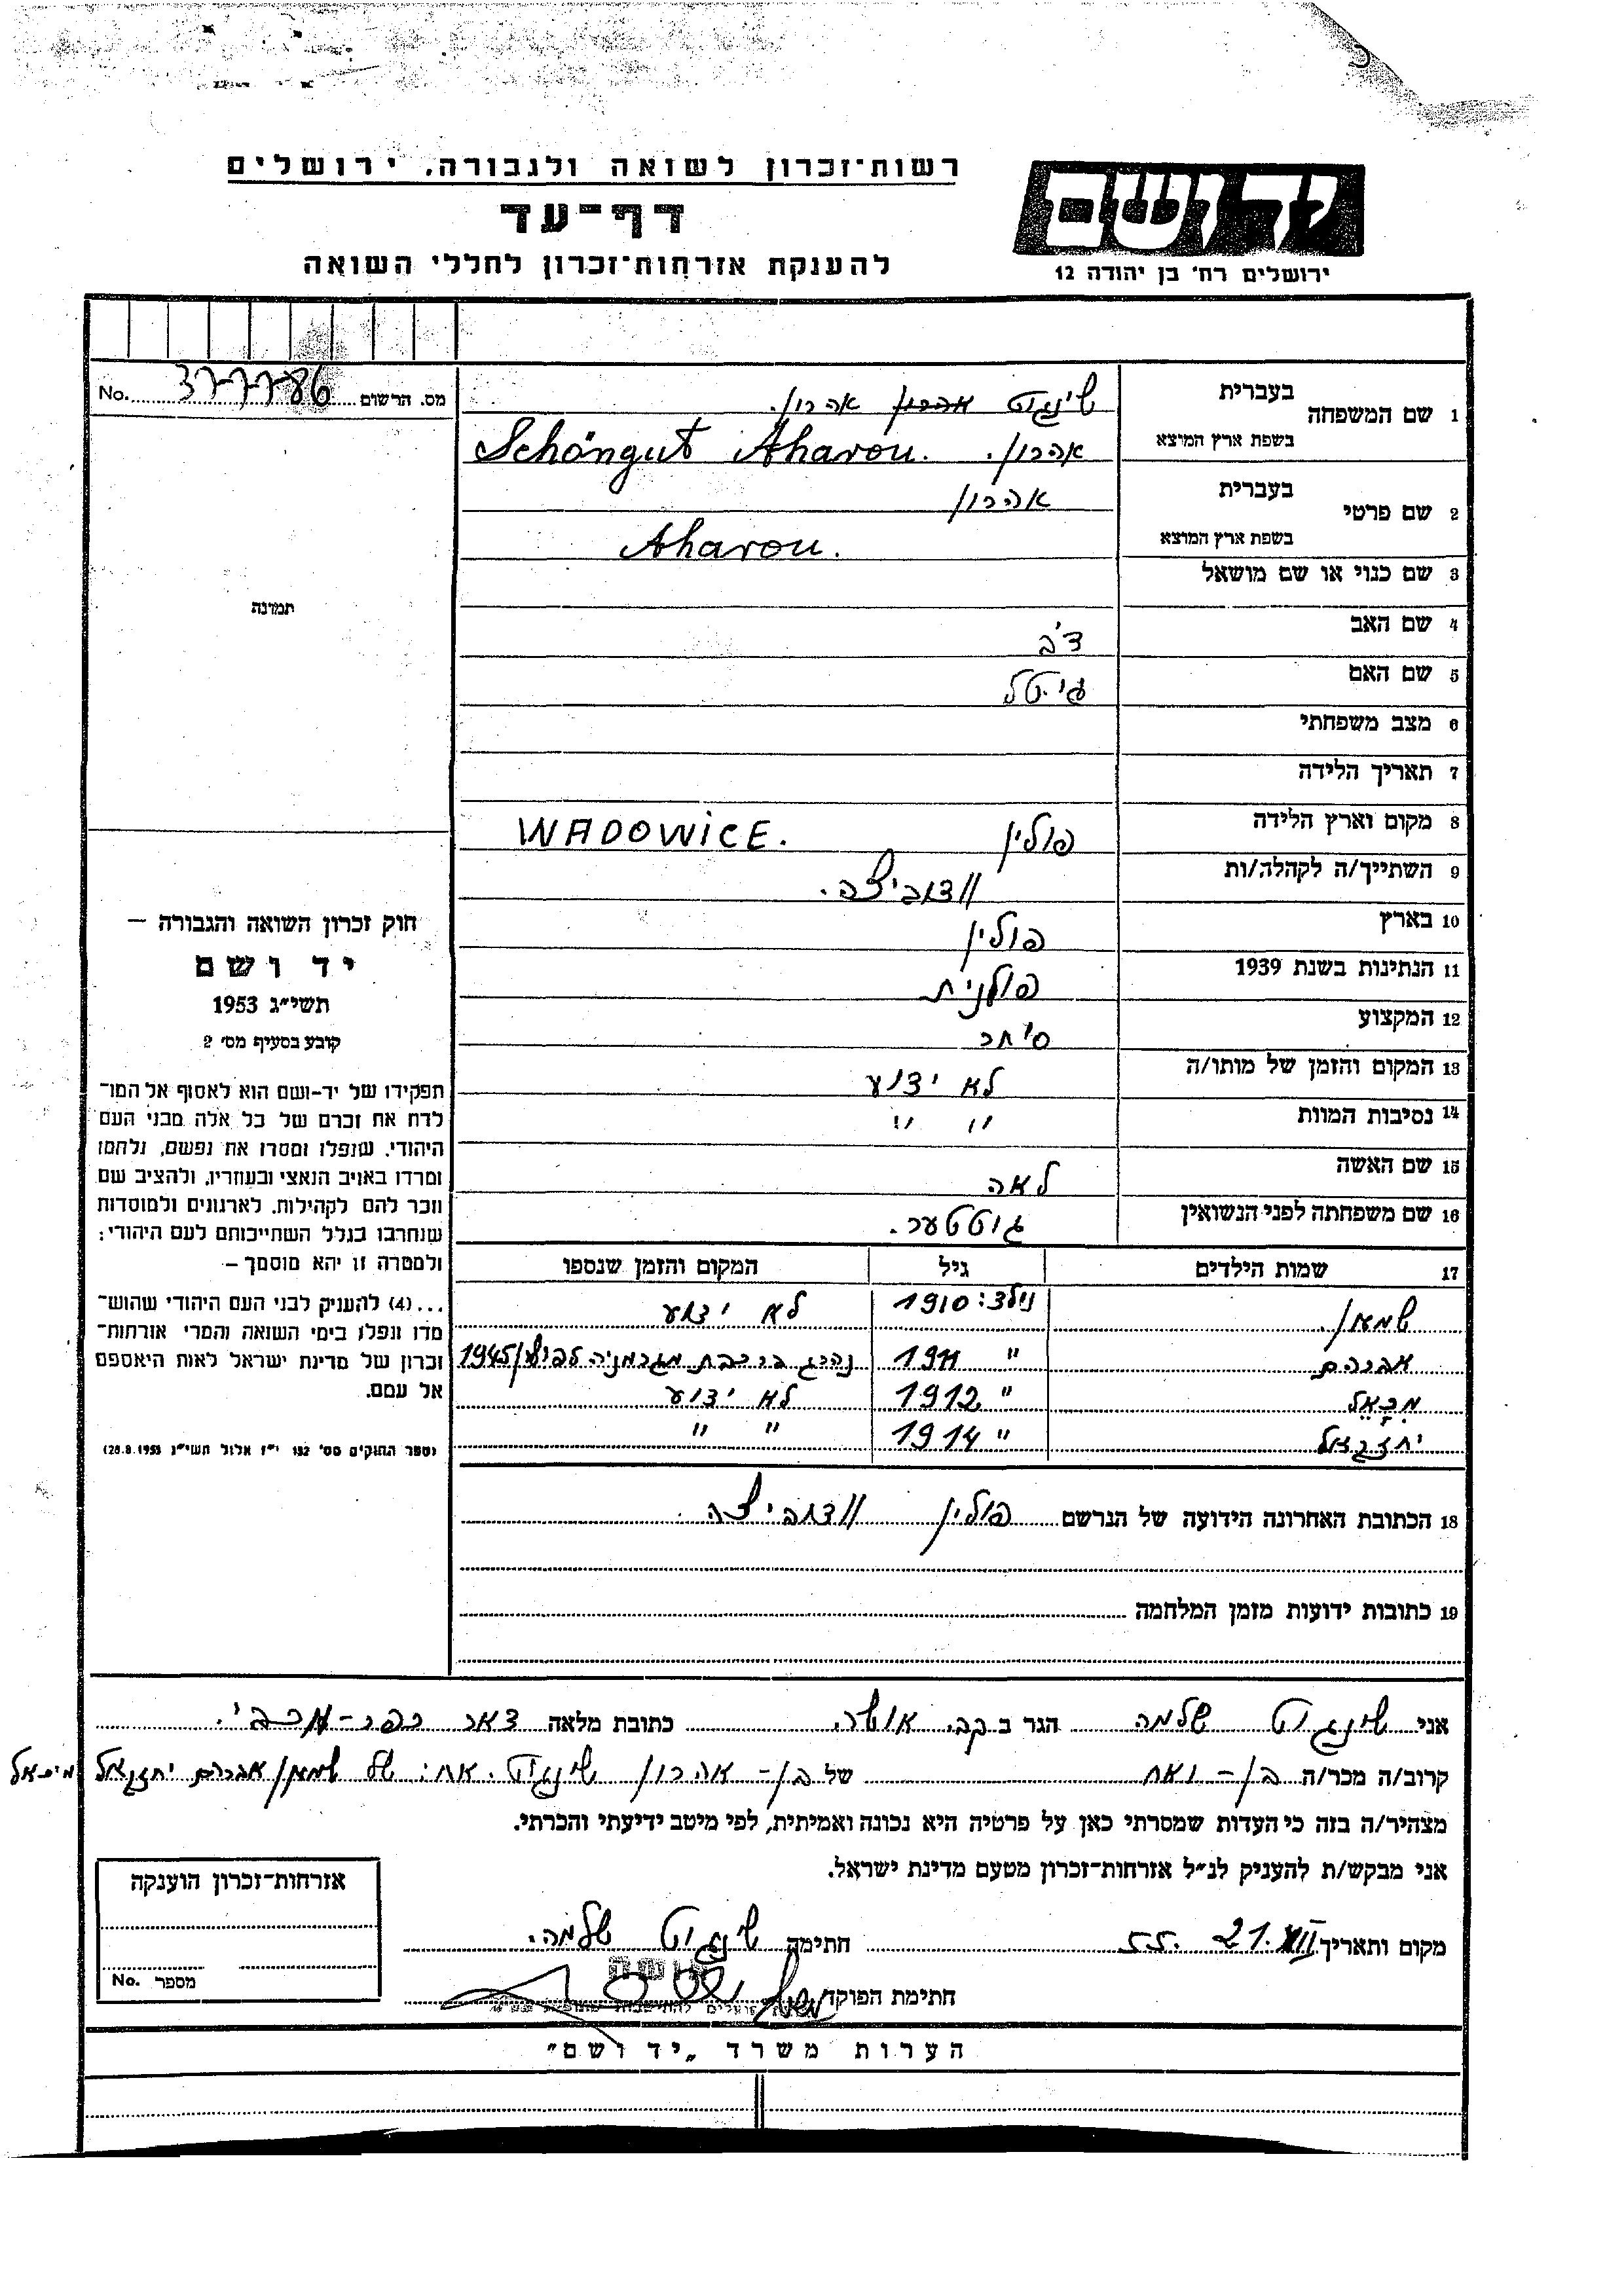 רשות־זכרון לשואה ולגבורה, ירושלים
יד ושם
דף־עד
ירושלים רח' בן יהודה 12
להענקת אזרחות־זכרון לחללי השואה
מס. הרשום No.
1 שם המשפחה בעברית שינגוט אהרון אהרון.
בשפת ארץ המוצא אהרון. Schöngut Aharon.
2 שם פרטי בעברית אהרון
בשפת ארץ המוצא Aharon.
3 שם כנוי או שם מושאל
תמונה
4 שם האב דב
5 שם האם גיטל
6 מצב משפחתי
7 תאריך הלידה
8 מקום וארץ הלידה פולין WADOWiCE.
9 השתייך/ה לקהלה/ות וודוביצה.
10 בארץ פולין
11 הנתינות בשנת 1939 פולנית
12 המקצוע סוחר
13 המקום והזמן של מותו/ה לא ידוע
14 נסיבות המוות " "
15 שם האשה לאה
16 שם משפחתה לפני הנשואין גוטטער.
17 שמות הילדים גיל המקום והזמן שנספו
שמעון. נולד: 1910 לא ידוע
אברהם " 1911 נהרג ברכבת מגרמניה לפולין 1945
מיכאל " 1912 לא ידוע
יחזקאל " 1914 " "
18 הכתובת האחרונה הידועה של הנרשם פולין וודוביצה.
19 כתובות ידועות מזמן המלחמה
חוק זכרון השואה והגבורה –
יד ושם
תשי״ג 1953
קובע בסעיף מס׳ 2
תפקידו של יד-ושם הוא לאסוף אל המו־
לדת את זכרם של כל אלה מבני העם
היהודי, שנפלו ומסרו את נפשם, נלחמו
ומרדו באויב הנאצי ובעוזריו, ולהציב שם
וזכר להם לקהילות, לארגונים ולמוסדות
שנחרבו בגלל השתייכותם לעם היהודי;
ולמטרה זו יהא מוסמך –
...(4) להעניק לבני העם היהודי שהוש־
מדו ונפלו בימי השואה והמרי אזרחות־
זכרון של מדינת ישראל לאות היאספם
אל עמם.
(ספר החוקים מס׳ 132 י״ז אלול תשי״ג 28.8.1953)
אני שינגוט שלמה הגר ב קב. אושה כתובת מלאה דאר כפר-מכבי.
קרוב/ה מכר/ה בן - ואח של בן - אהרון שינגוט. אח: של שמעון אברהם יחזקאל מיכאל
מצהיר/ה בזה כי העדות שמסרתי כאן על פרטיה היא נכונה ואמיתית, לפי מיטב ידיעתי והכרתי.
אני מבקש/ת להעניק לנ״ל אזרחות־זכרון מטעם מדינת ישראל.
מקום ותאריך 21.XII.55 חתימה שינגוט שלמה.
חתימת הפוקד
אזרחות־זכרון הוענקה
מספר No.
הערות משרד „יד ושם״